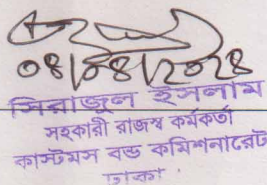 ০৪/০৪/২০২৪
সিরাজুল ইসলাম
সহকারী রাজস্ব কর্মকর্তা
কাস্টমস বন্ড কমিশনারেট
ঢাকা